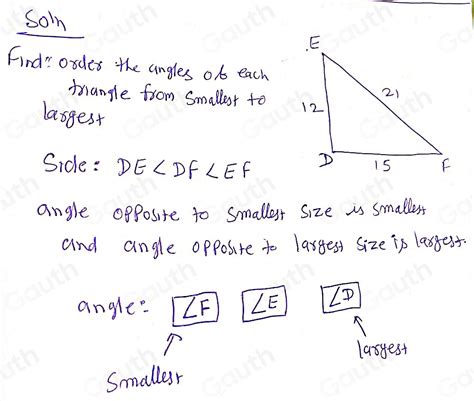 Soln
Find: order the angles of each
triangle from smallest to
largest
E
12
21
D
15
F
Side: DE < DF < EF
angle opposite to smallest size is smallest
and angle opposite to largest size is largest.
angle: ∠F ∠E ∠D
smallest
largest
Gauth